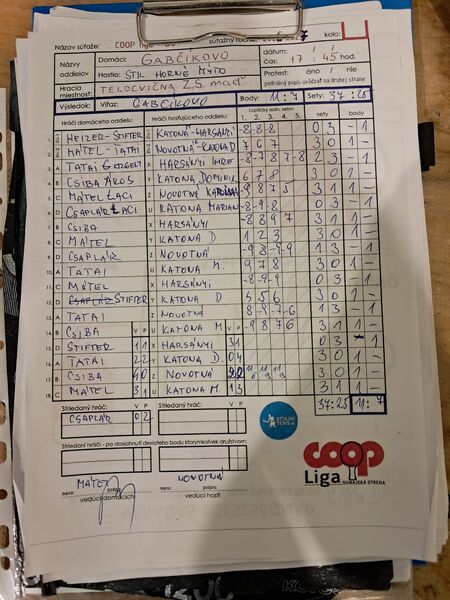 Názov súťaže: COOP liga
súťažný ročník:
kolo:
Názvy oddielov
Domáci: GABČÍKOVO
Hostia: STK HORNÉ MÝTO
dátum: / /
čas: 17 : 45 hod.
Hracia miestnosť: TELOCVIČŇA Z.Š. maď
Protest: áno / nie
podrobný popis uvádzať na druhej strane
Výsledok: Víťaz: GABČIKOVO Body: 11:7 Sety: 37:25
Hráči domáceho oddielu: Hráči hosťujúceho oddielu: Loptičky jedn. setov 1. 2. 3. 4. 5. sety body
1. HEIZER-STIFTER KATONA-HARSÁNYI -8 -8 -8 0 3 - 1
2. MÁTEL-TATAI NOVOTNÁ-KATONA D 7 6 7 3 0 1 -
3. A TATAI GERGELY X HARSÁNYI IMRE -8 -7 8 7 -8 2 3 - 1
4. B CSIBA ÁKOS Y KATONA DOMINIK 6 7 8 3 0 1 -
5. C MÁTEL LACI Z NOVOTNÁ -9 8 7 5 3 1 1 -
6. D CSAPLÁR LACI U KATONA MARIAN -8 -9 -8 0 3 - 1
7. B CSIBA X HARSÁNYI -8 8 9 7 3 1 1 -
8. C MÁTEL Y KATONA D 1 2 3 3 0 1 -
9. D CSAPLÁR Z NOVOTNÁ -9 8 -9 -9 1 3 - 1
10. A TATAI U KATONA M. 9 7 8 3 0 1 -
11. C MÁTEL X HARSÁNYI -8 -9 -9 0 3 - 1
12. D STIFTER Y KATONA D 5 5 6 3 0 1 -
13. A TATAI Z NOVOTNÁ 8 -9 -7 -6 1 3 - 1
14. B CSIBA V P U KATONA M V P -9 8 7 6 3 1 1 -
15. D STIFTER 1 1 X HARSÁNYI 3 1 0 3 - 1
16. A TATAI 2 2 Y KATONA D 0 4 3 0 1 -
17. B CSIBA 4 0 Z NOVOTNÁ 2 2 3 1 1 -
18. C MÁTEL 3 1 U KATONA M. 1 3 3 1 1 -
37:25 11:7
Striedaný hráč: V P Striedaný hráč: V P
CSAPLÁR 0 2
STOLNÝ TENIS.sk
Striedaní hráči - po dosiahnutí desiateho bodu ktorýmkoľvek družstvom:
V P V P
coop
Liga
DUNAJSKÁ STREDA
MÁTEL NOVOTNÁ
meno: podpis: meno: podpis:
vedúci domácich vedúci hostí